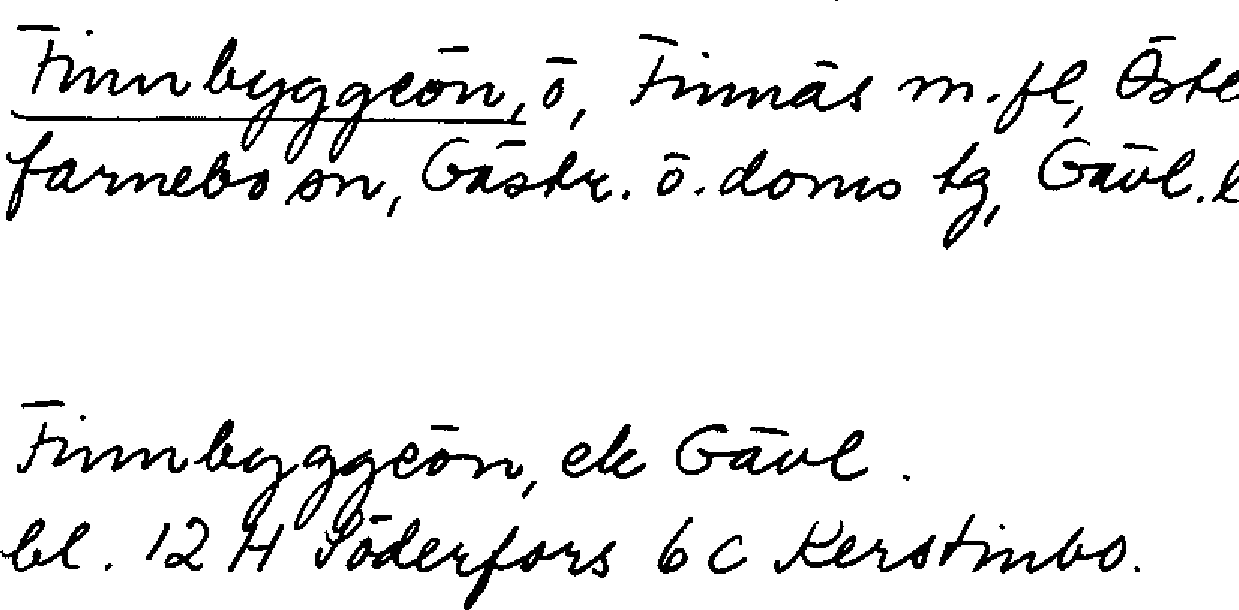 Finnbyggeön, ö, Finnäs m.fl, Öste
färnebo sn, Gästr. ö. doms tg, Gävl. l
Finnbyggeön, ek Gävl.
bl. 12 H Söderfors 6 c Kerstinbo.